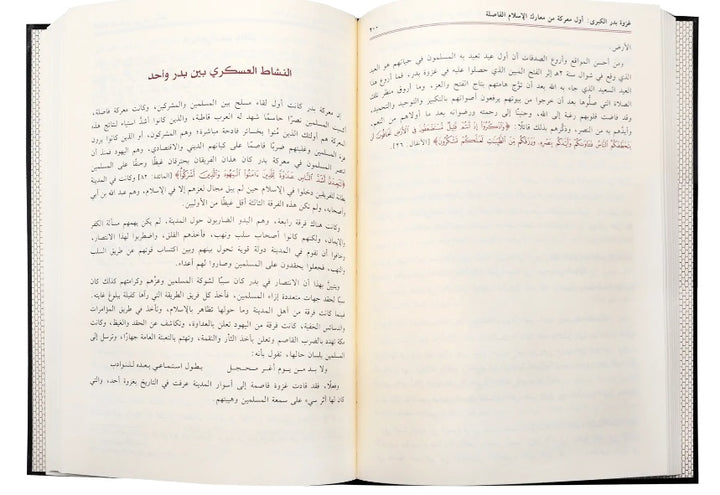 ٢٠٠ غزوة بدر الكبرى: أول معركة من معارك الإسلام الفاصلة
الأرض.
ومن أحسن المواقع وأروع الصدفات أن أول عيد تعيد به المسلمون في حياتهم هو العيد
الذي وقع في شوال سنة ٢هـ إثر الفتح المبين الذي حصلوا عليه في غزوة بدر، فما أروع هذا
العيد السعيد الذي جاء به الله بعد أن توَّج هامتهم بتاج الفتح والعز، وما أروق منظر تلك
الصلاة التي صلُّوها بعد أن خرجوا من بيوتهم يرفعون أصواتهم بالتكبير والتوحيد والتحميد،
وقد فاضت قلوبهم رغبة إلى الله، وحنينًا إلى رحمته ورضوانه بعد ما أولاهم من النعم،
وأيدهم به من النصر، وذكَّرهم بذلك قائلًا: ﴿وَاذْكُرُوا إِذْ أَنتُمْ قَلِيلٌ مُّسْتَضْعَفُونَ فِي الْأَرْضِ تَخَافُونَ أَن
يَتَخَطَّفَكُمُ النَّاسُ فَآوَاكُمْ وَأَيَّدَكُم بِنَصْرِهِ وَرَزَقَكُم مِّنَ الطَّيِّبَاتِ لَعَلَّكُمْ تَشْكُرُونَ﴾ [الأنفال: ٢٦].
النشاط العسكري بين بدر وأحد
إن معركة بدر كانت أول لقاء مسلح بين المسلمين والمشركين، وكانت معركة فاصلة،
أكسبت المسلمين نصرًا حاسمًا شهد له العرب قاطبة، والذين كانوا أشدَّ استياء لنتائج هذه
المعركة هم أولئك الذين مُنوا بخسائر فادحة مباشرة؛ وهم المشركون، أو الذين كانوا يرون
عزة المسلمين وغلبتهم ضربًا قاصمًا على كيانهم الديني والاقتصادي، وهم اليهود فمنذ أن
انتصر المسلمون في معركة بدر كان هذان الفريقان يحترقان غيظًا وحنقًا على المسلمين
﴿لَتَجِدَنَّ أَشَدَّ النَّاسِ عَدَاوَةً لِّلَّذِينَ آمَنُوا الْيَهُودَ وَالَّذِينَ أَشْرَكُوا﴾ [المائدة: ٨٢] وكانت في المدينة
بطانة للفريقين دخلوا في الإسلام حين لم يبق مجال لعزهم إلا في الإسلام، وهم عبد الله بن أبي
وأصحابه، ولم تكن هذه الفرقة الثالثة أقل غيظًا من الأوليين.
وكانت هناك فرقة رابعة، وهم البدو الضاربون حول المدينة، لم يكن يهمهم مسألة الكفر
والإيمان، ولكنهم كانوا أصحاب سلب ونهب، فأخذهم القلق، واضطربوا لهذا الانتصار،
وخافوا أن تقوم في المدينة دولة قوية تحول بينهم وبين اكتساب قوتهم عن طريق السلب
والنهب، فجعلوا يحقدون على المسلمين وصاروا لهم أعداء.
ويتبين بهذا أن الانتصار في بدر كان سببًا لشوكة المسلمين وعزِّهم وكرامتهم كذلك كان
سببًا لحقد جهات متعددة إزاء المسلمين، فأخذ كل فريق الطريقة التي رآها كفيلة ببلوغ غايته.
فبينما كانت فرقة من أهل المدينة وما حولها تظاهر بالإسلام، وتأخذ في طريق المؤامرات
والدسائس الخفية، كانت فرقة من اليهود تعلن بالعداوة، وتكاشف عن الحقد والغيظ، وكانت
مكة تهدد بالضرب القاصم وتعلن بأخذ الثأر والنقمة، وتهتم بالتعبئة العامة جهارًا، وترسل إلى
المسلمين بلسان حالها، تقول بأنه:
ولا بد من يوم أغر محجل يطول استماعي بعده للنوادب
وفعلًا، فقد قادت غزوة قاصمة إلى أسوار المدينة عرفت في التاريخ بغزوة أحد، والتي
كان لها أثر سيء على سمعة المسلمين وهيبتهم.